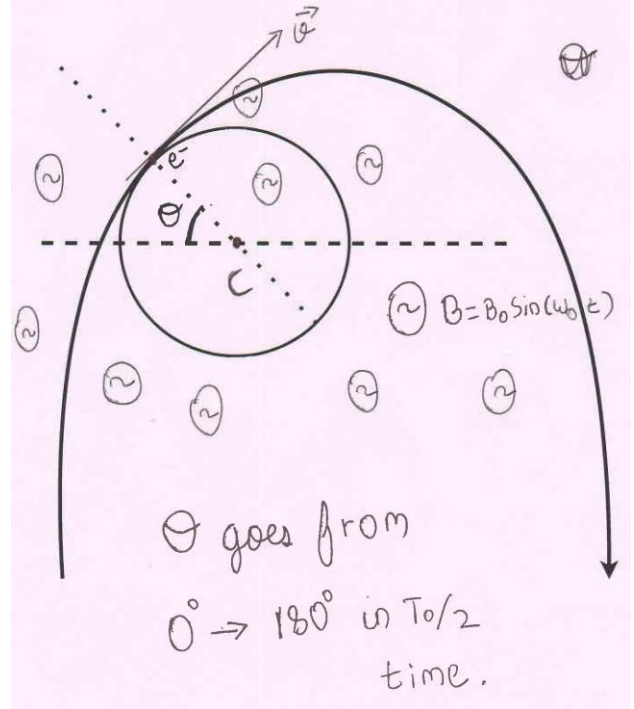 v⃗
e⁻
θ
C
~ B=B₀ Sin(ω₀t)
θ goes from
0° → 180° in T₀/2
time.